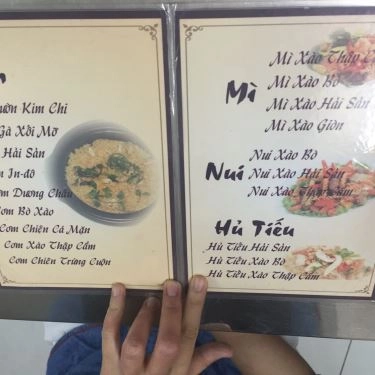 Kim Chi
Gà Xối Mỡ
Hải Sản
In-đô
Dương Châu
Cơm Bò Xào
Cơm Chiên Cá Mặn
Cơm Xào Thập Cẩm
Cơm Chiên Trứng Cuộn
Mì
Mì Xào Thập
Mì Xào Bò
Mì Xào Hải Sản
Mì Xào Giòn
Nui
Nui Xào Bò
Nui Xào Hải Sản
Nui Xào Thập Cẩm
Hủ Tiếu
Hủ Tiếu Hải Sản
Hủ Tiếu Xào Bò
Hủ Tiếu Xào Thập Cẩm